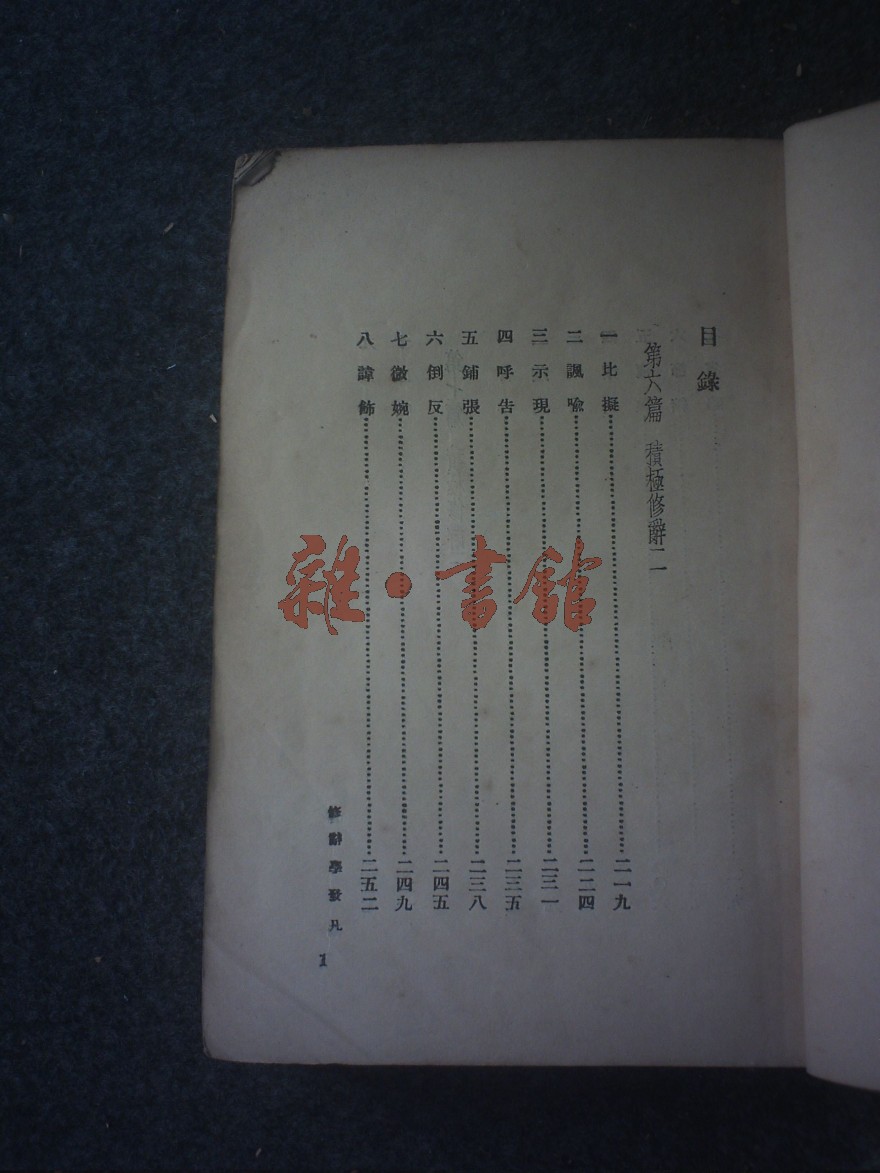 目錄
第六篇 積極修辭二
一 比擬……二一九
二 諷喩……二二四
三 示現……二三一
四 呼告……二三五
五 鋪張……二三八
六 倒反……二四五
七 微婉……二四九
八 諱飾……二五二
修辭學發凡
1
雜·書館